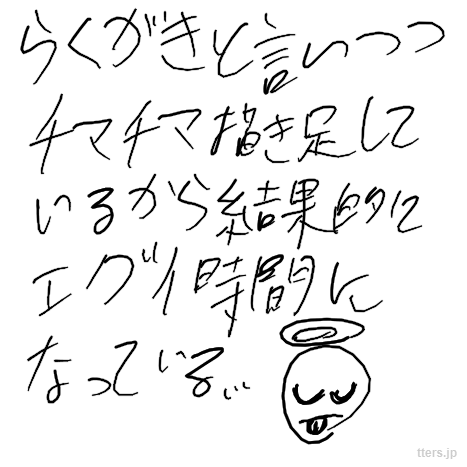 らくがきと言いつつ
チマチマ描き足して
いるから結果的に
エグイ時間に
なっている...
tters.jp